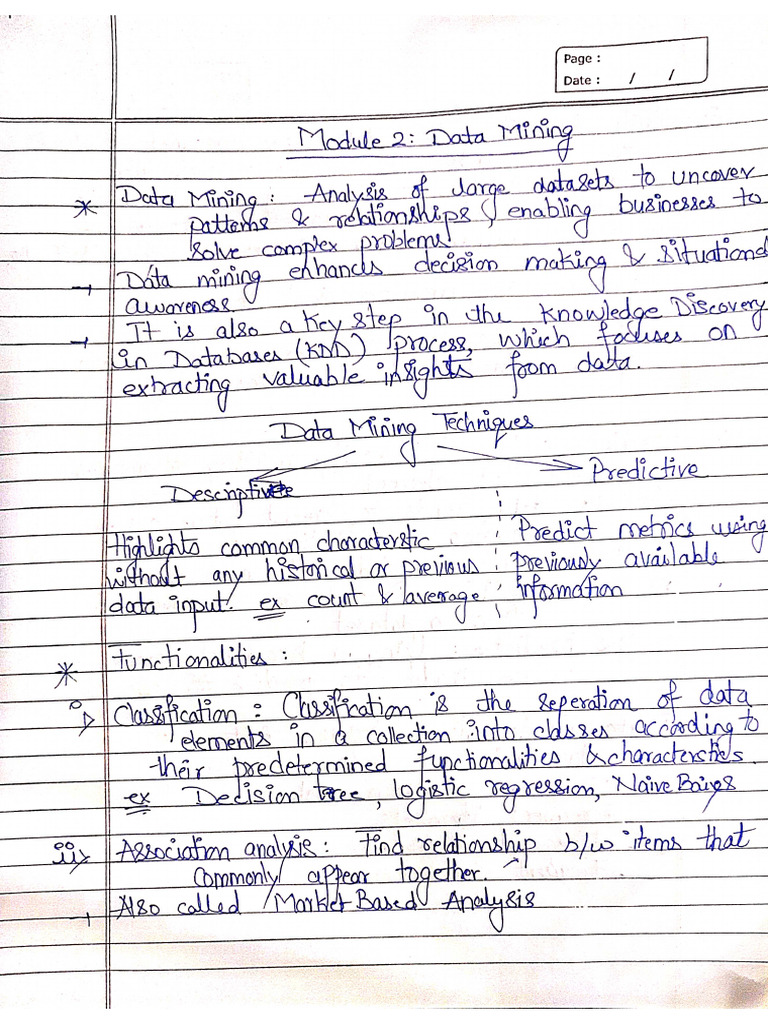 Page :
Date : / /
Module 2: Data Mining
* Data Mining : Analysis of large datasets to uncover
patterns & relationships, enabling businesses to
solve complex problems
→ Data mining enhances decision making & situational
awareness
→ It is also a key step in the Knowledge Discovery
in Databases (KDD) process, which focuses on
extracting valuable insights from data.
Data Mining Techniques
Descriptive Predictive
Highlights common characterstic Predict metrics using
without any historical or previous previously available
data input. ex count & average information
* Functionalities :
i> Classification : Classification is the seperation of data
elements in a collection into classes according to
their predetermined functionalities & characterstics.
ex Decision tree, logistic regression, Naive Baiys
ii> Association analysis : Find relationship b/w items that
commonly appear together.
→ Also called Market Based Analysis